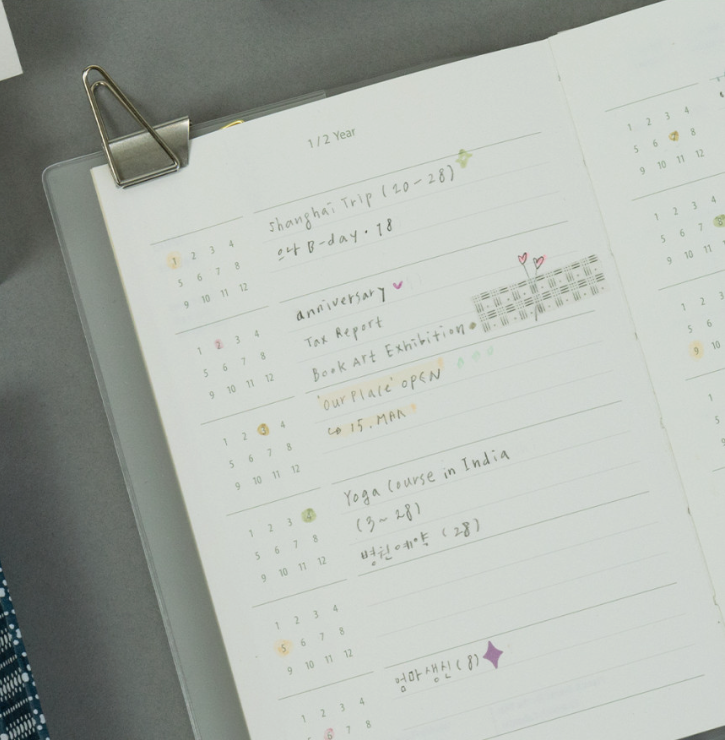 1 / 2 Year
1 2 3 4
5 6 7 8
9 10 11 12
Shanghai Trip (20-28)
B-day. 18
1 2 3 4
5 6 7 8
9 10 11 12
anniversary
Tax Report
Book Art Exhibition
1 2 3 4
5 6 7 8
9 10 11 12
'Our Place' OPEN
↪ 15. MAR
1 2 3 4
5 6 7 8
9 10 11 12
Yoga Course in India
(3~28)
병원예약 (28)
1 2 3 4
5 6 7 8
9 10 11 12
1 2 3 4
5 6 7 8
엄마생신(8)
1 2 3 4
5 6 7 8
9 10 11 12
1 2 3 4
5 6 7
9 10 11
1 2 3
5 6
9 10
1
5
9